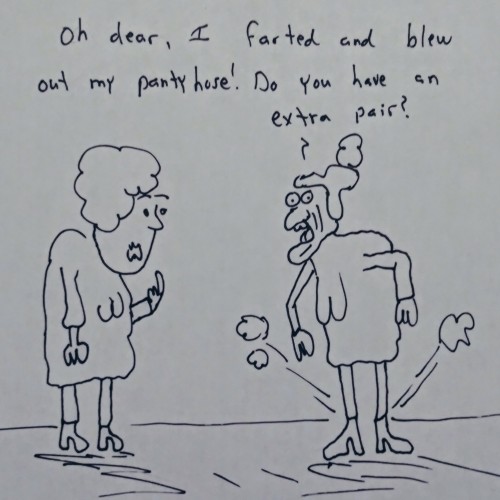 Oh dear, I farted and blew
out my pantyhose! Do you have an
extra pair?